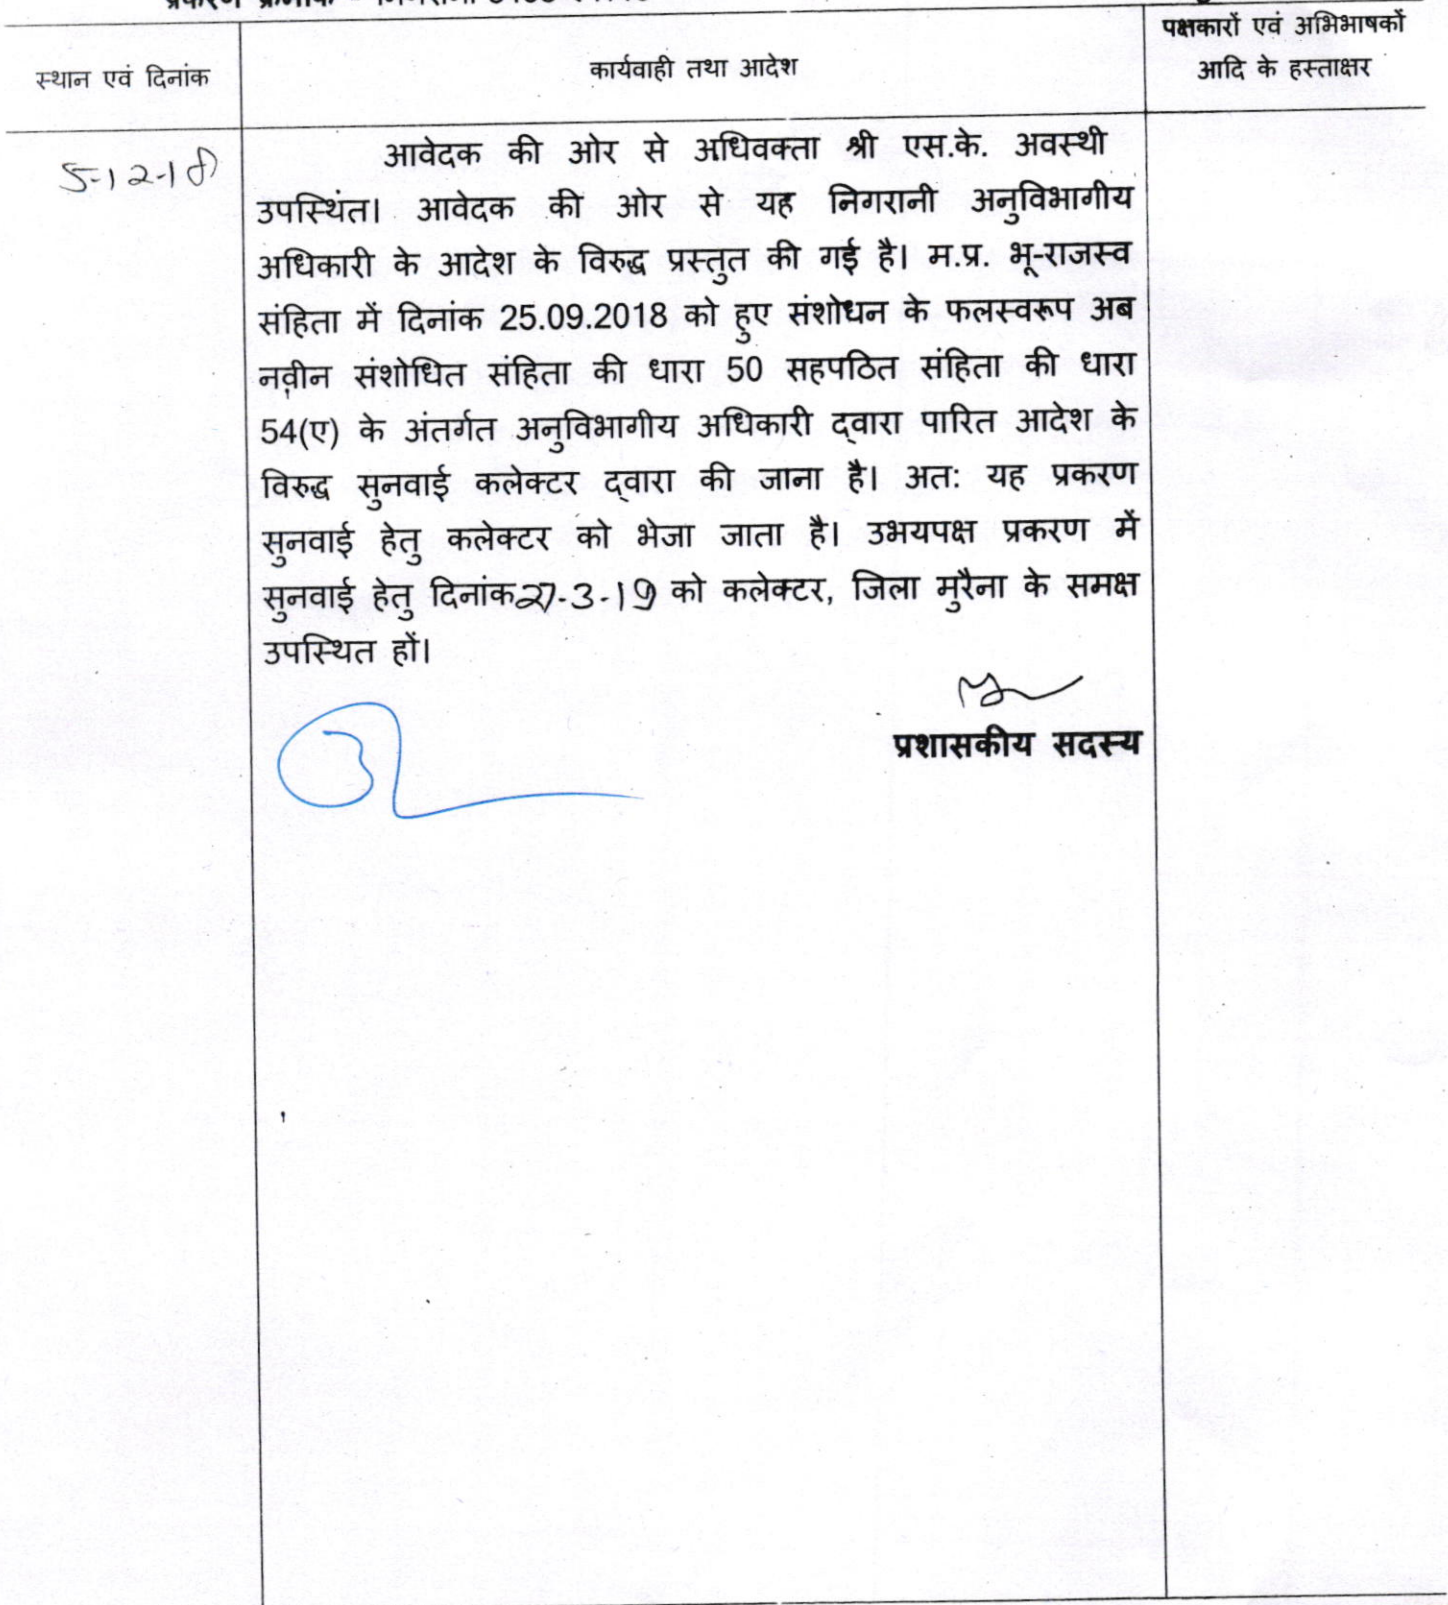 स्थान एवं दिनांक
कार्यवाही तथा आदेश
पक्षकारों एवं अभिभाषकों
आदि के हस्ताक्षर
5-12-18
आवेदक की ओर से अधिवक्ता श्री एस.के. अवस्थी
उपस्थित। आवेदक की ओर से यह निगरानी अनुविभागीय
अधिकारी के आदेश के विरुद्ध प्रस्तुत की गई है। म.प्र. भू-राजस्व
संहिता में दिनांक 25.09.2018 को हुए संशोधन के फलस्वरूप अब
नवीन संशोधित संहिता की धारा 50 सहपठित संहिता की धारा
54(ए) के अंतर्गत अनुविभागीय अधिकारी द्वारा पारित आदेश के
विरुद्ध सुनवाई कलेक्टर द्वारा की जाना है। अत: यह प्रकरण
सुनवाई हेतु कलेक्टर को भेजा जाता है। उभयपक्ष प्रकरण में
सुनवाई हेतु दिनांक 27-3-19 को कलेक्टर, जिला मुरैना के समक्ष
उपस्थित हों।
प्रशासकीय सदस्य